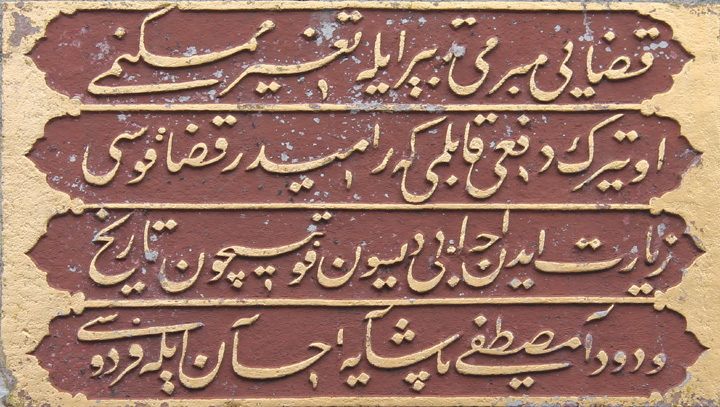 قضایی مبرمی تدبیر ایله تغییر ممکنمی
او تیرك دفعی قابلمی که رامیدر قضا قوسی
زیارت ایدن احبابی دیسون فوتیچون تاریخ
ودودا مصطفی پاشایه احسان ایله فردوسی